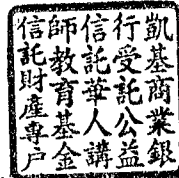 凱基商業銀
行受託公益
信託華人講
師教育基金
信託財產專戶